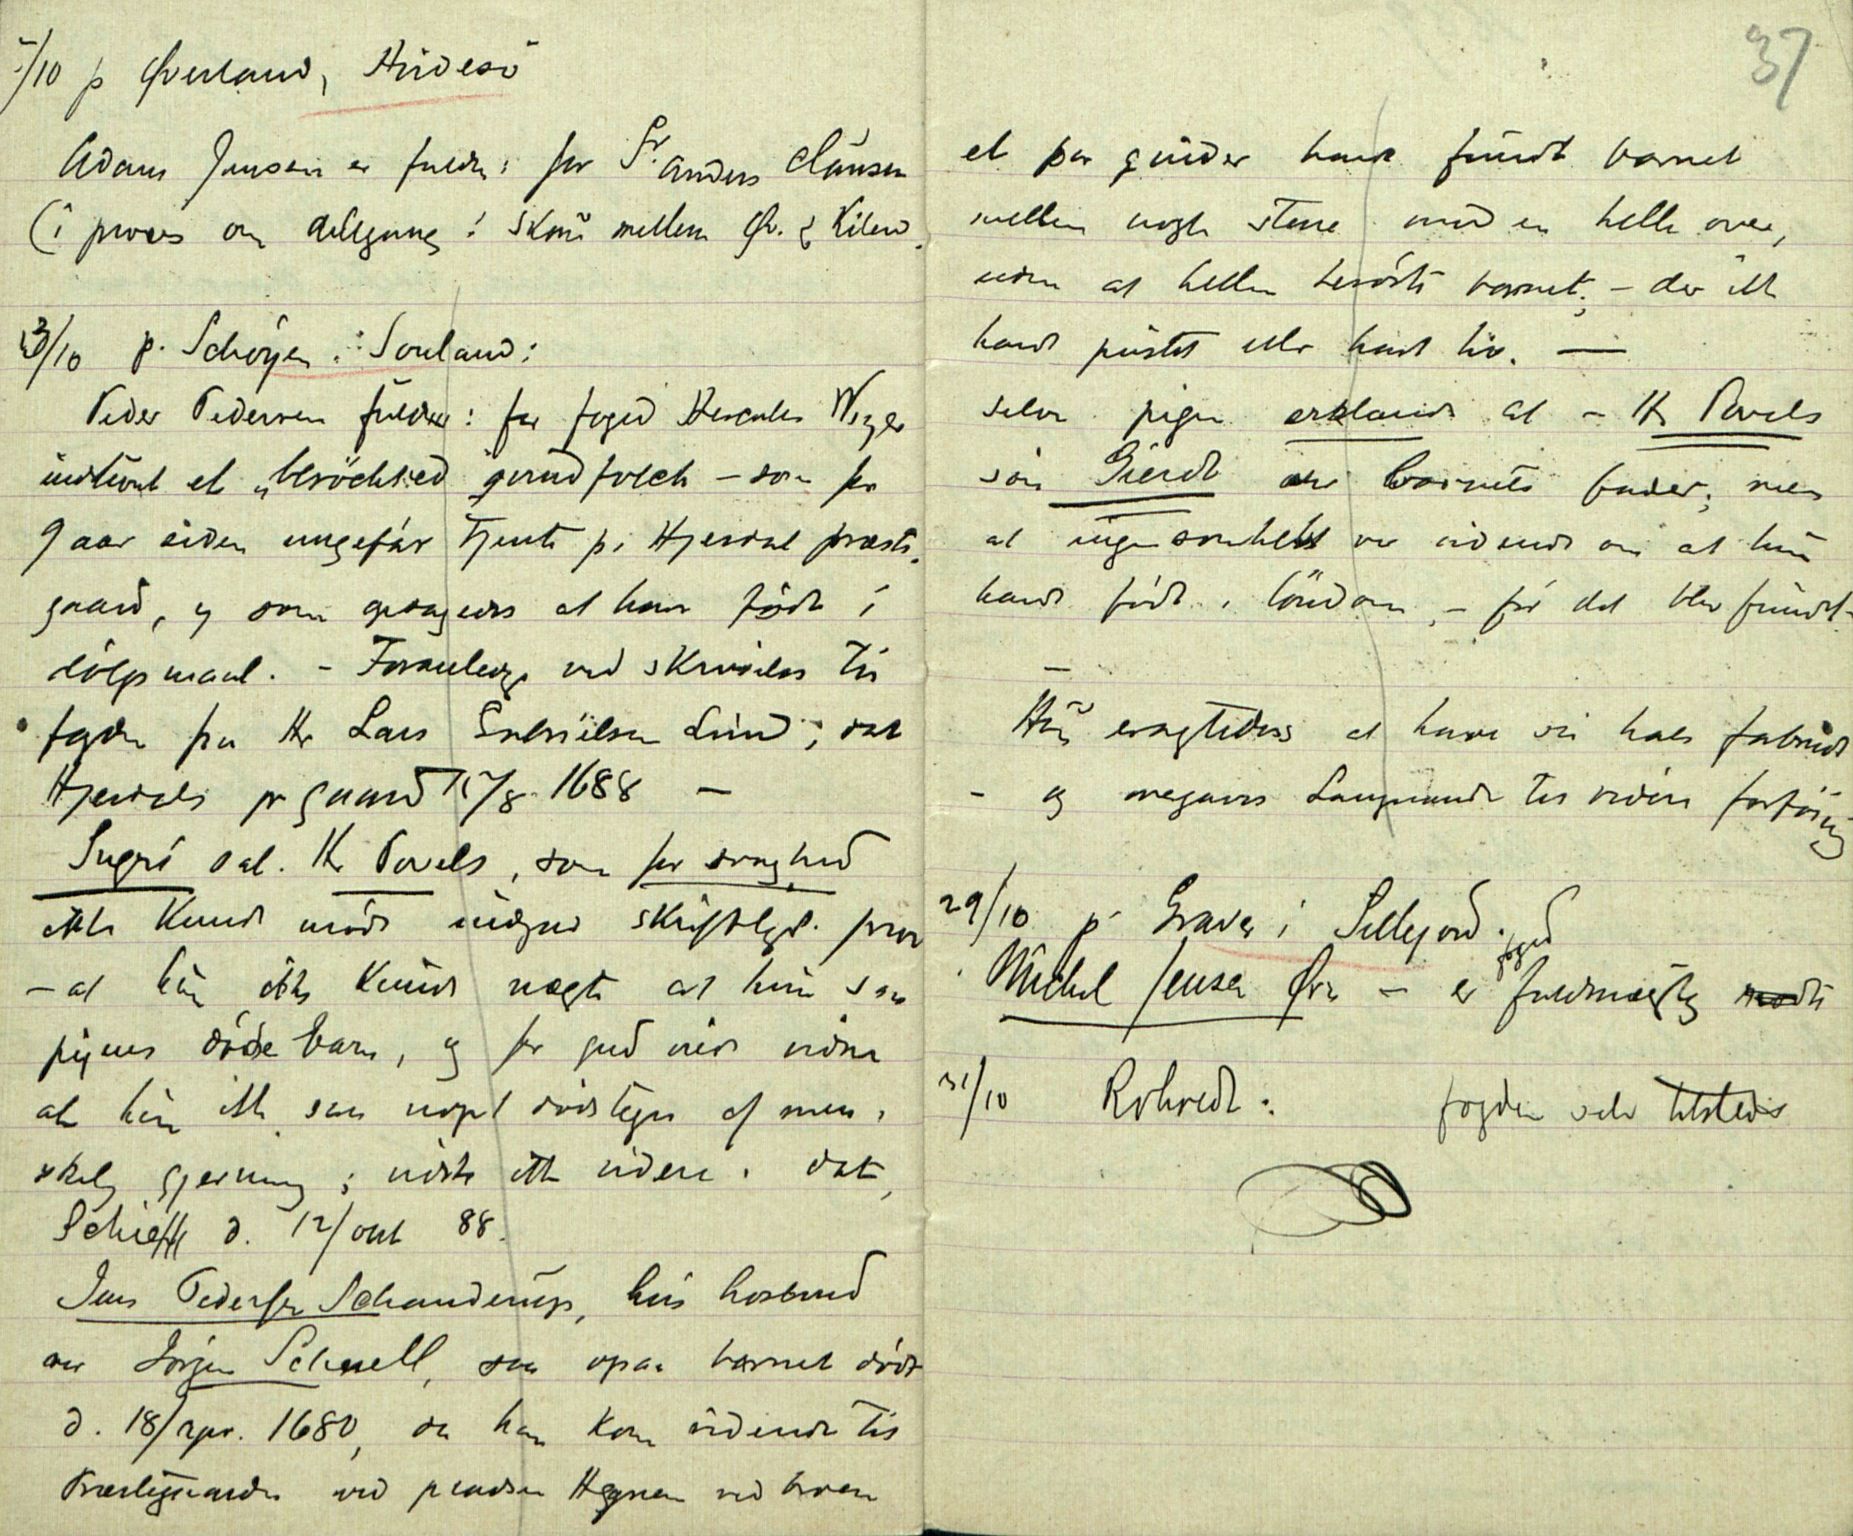 /10 p Øverland, Hvidesö
Adam Jensen er fuldm: for Sr. Anders Clausen
(i proces om delegang i skau mellem Øv. & Kilen.
/10 p. Schøyen i Souland:
Peder Pedersen fuldm: for foged Hercules Weyer
indtevnt et "berøchted quindfolch – som for
9 aar siden ungefær tjente på Hjerdal præste-
gaard, og som opsagdes at have födt i
dölgsmaal. – Foranledge ved skrivelse til
fogden fra Hr Lars Lund; dat
Hjerdals pr gaard /8 1688 –
Sugri sal. Hr Povels, som for svaghed
ikke kunde möde indgav skriftligt. prov
– at hun ikke kunde nægte at hun saa
pigens døde barn, og for gud vilde vidne
at hun ikke saa noget dödstegn af men-
skelig gjerning; vidste ikke videre. dat,
d. 12/okt 88.
Jens Pedersen Schanderups, hus hosbond
var Jörgen Schnell, saa opaa barnet döde
d. 18/apr. 1680, da han kom ridende til
Præstegaarden ved pladsen Hegnen ved broen
37
et par quinder havde fundet barnet
mellem nogle stene med en helle over,
uden at hellen berörte barnet; – der ikke
havde pustet eller havt liv. —
selve pigen erklærede at – Hr Povels
sön Gierdt var barnets fader; men
at ingensomhelst var vidende om at hun
havde födt i löndom, – för det blev fundet–
—
Hun eragtedes at have sin hals forbrudt
– og overgaves Laugmanden til videre forföining
29/10 p Graver i Sillejord. foged
Michel Jensen Ørn – er fuldmægtig
31/10 Rohoedt: fogden selv tilstede